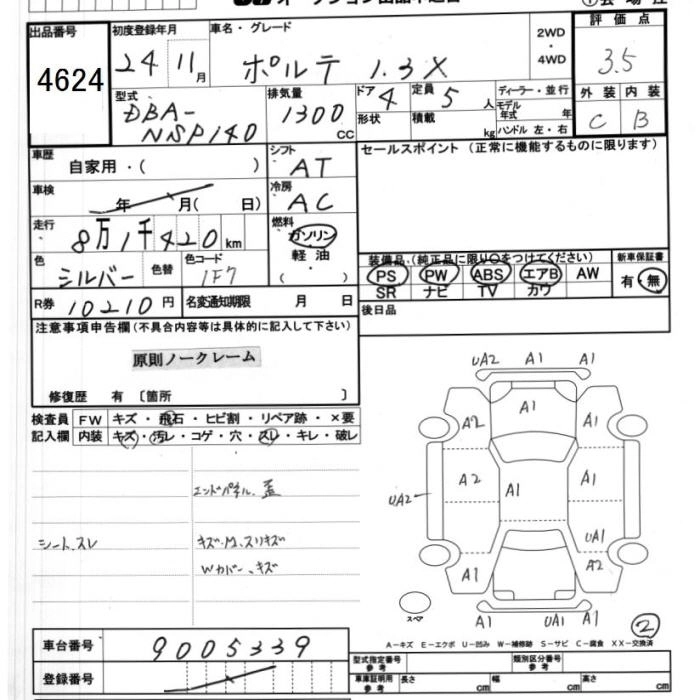 出品番号
4624
初度登録年月
24 11月
車名・グレード
ポルテ 1.3X
2WD
・
4WD
評価点
3.5
外装 内装
C B
型式
DBA-
NSP140
排気量
1300
CC
ドア 4
定員 5 人
形状
積載 kg
ディーラー・並行
モデル
年式 年
ハンドル 左・右
車歴
自家用・( )
シフト
AT
セールスポイント (正常に機能するものに限ります)
車検
年 月( 日)
冷房
AC
走行
8万1千420km
燃料
ガソリン
軽油
・
( )
色
シルバー
色替
色コード
1F7
装備品 (純正品に限り○をつけてください)
PS PW ABS エアB AW
SR ナビ TV カワ
新車保証書
有・無
R券 10210円
名変通知期限 月 日
後日品
注意事項申告欄(不具合内容等は具体的に記入して下さい)
原則ノークレーム
修復歴 有 〔箇所 〕
検査員
記入欄
FW キズ・飛石・ヒビ割・リペア跡・×要
内装 キズ・汚レ・コゲ・穴・スレ・キレ・破レ
エンドパネル 歪
シート、スレ
キズ・M、スリキズ
Wカバー、キズ
UA2 A1 A1
A2 A1 A1
A2 A1 A1
UA2
UA1
A1 A2
A1 UA1 A1
スペア
2
A-キズ E-エクボ U-凹み W-補修跡 S-サビ C-腐食 XX-交換済
車台番号 9005339
登録番号
型式指定番号
参考
類別区分番号
参考
車庫証明用
参考
長さ cm 幅 cm 高さ cm